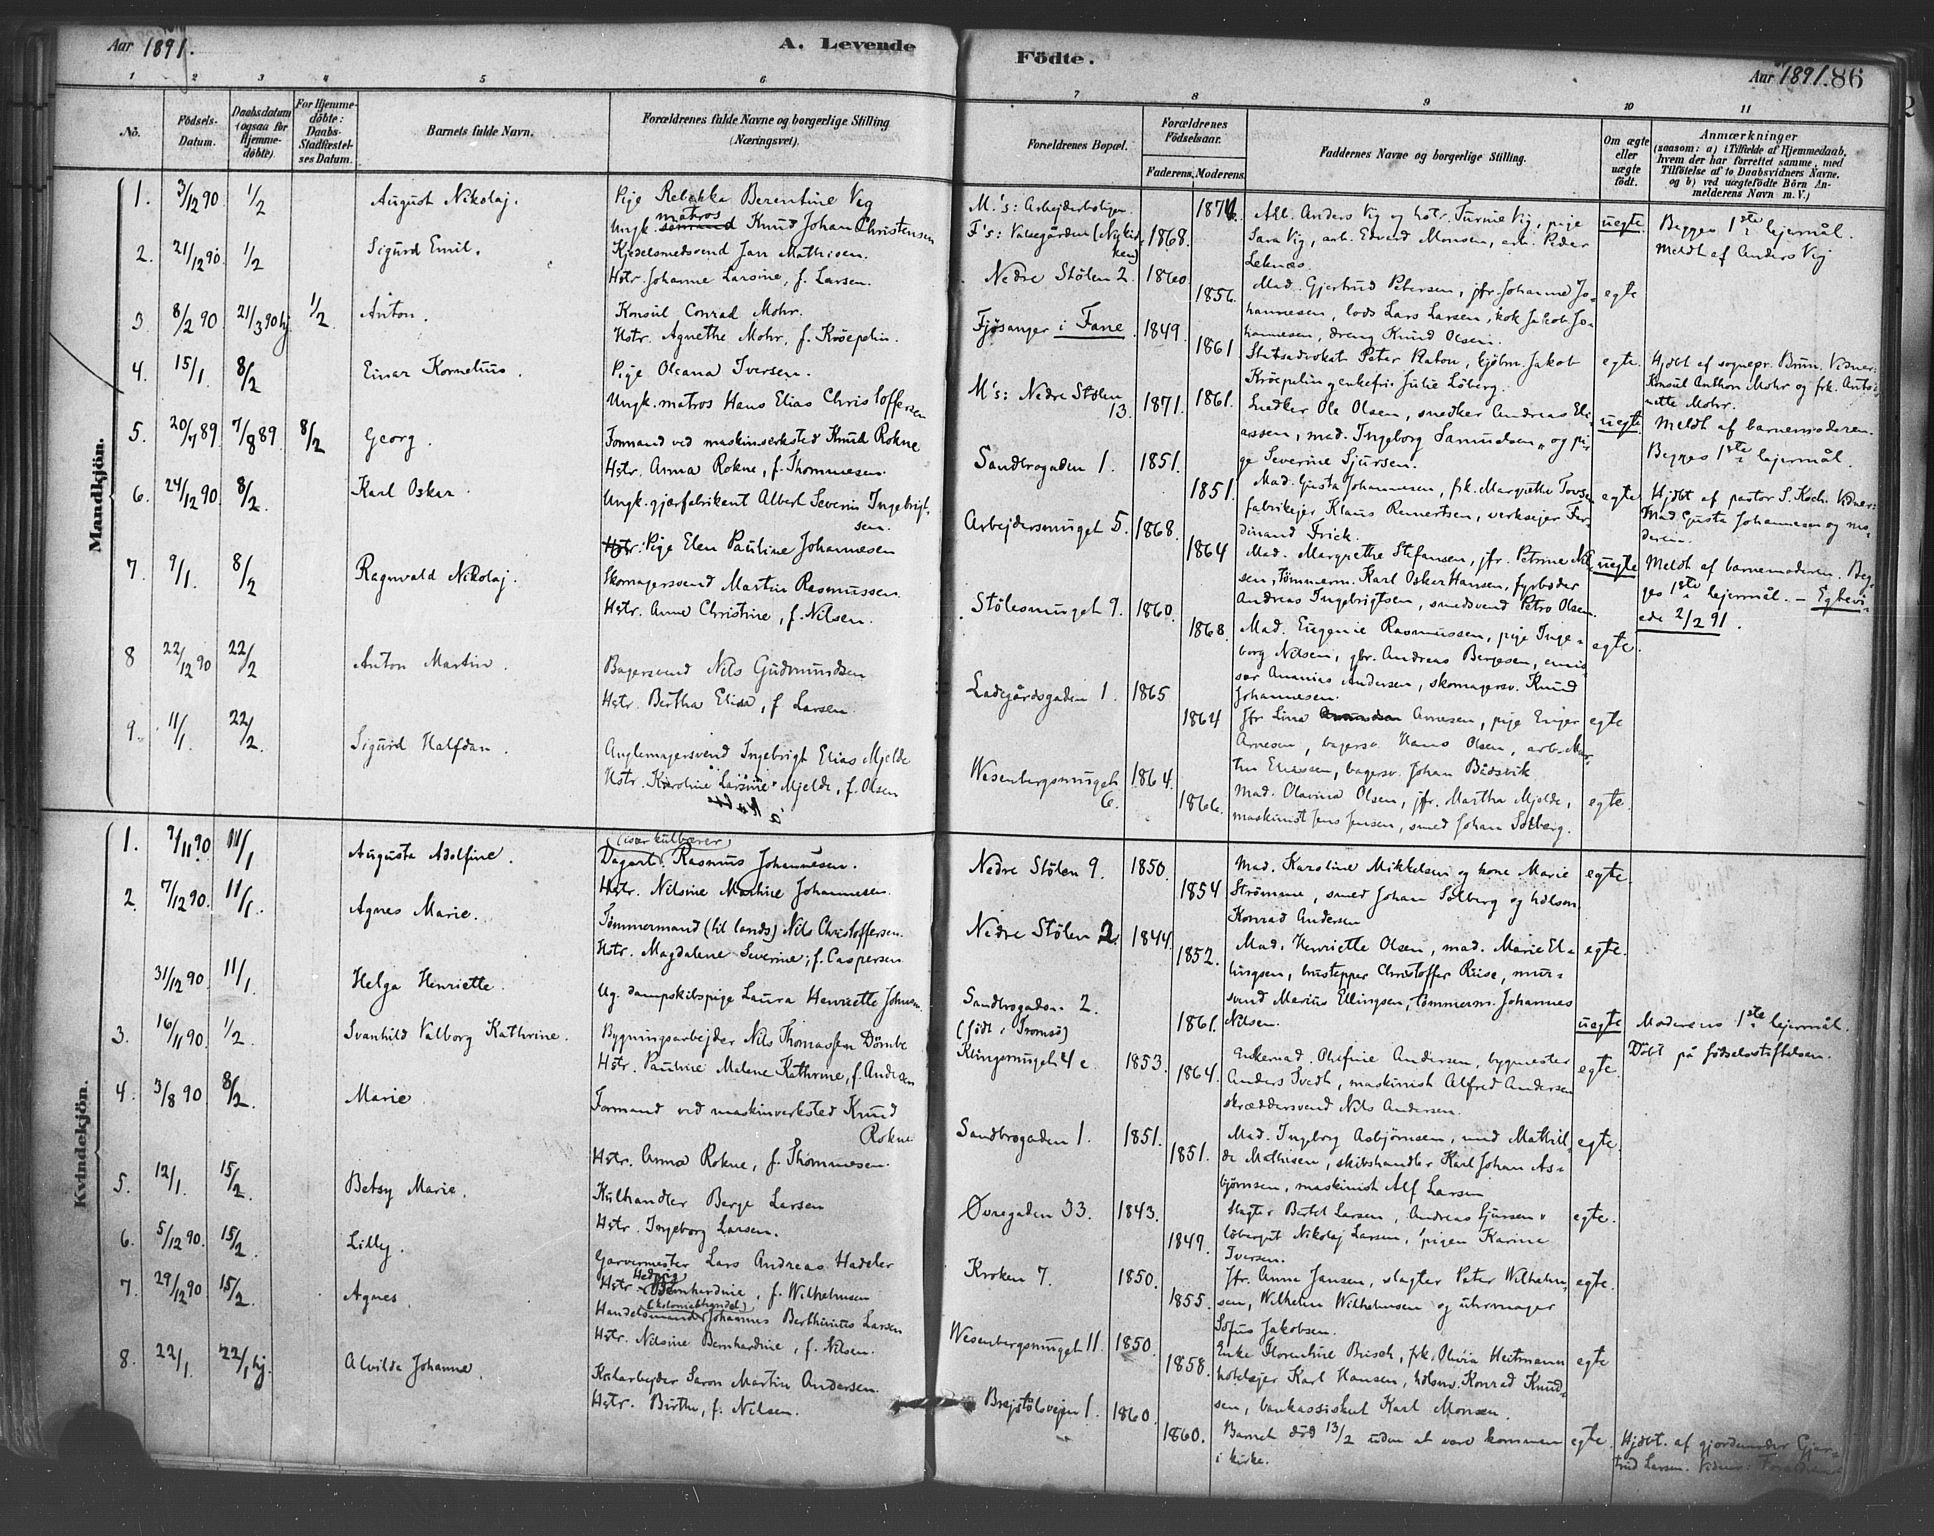 Aar 1891.
A. Levende
Födte.
Aar 1891. 86
1 2 3 4 5 6 7 8 9 10 11
No.
Födsels-Datum.
Daabsdatum (ogsaa for Hjemmedöbte).
For Hjemmedöbte: Daabs-Stadfæstelses Datum.
Barnets fulde Navn.
Forældrenes fulde Navne og borgerlige Stilling (Næringsvei).
Forældrenes Bopæl.
Forældrenes Födselsaar.
Faderens. Moderens.
Faddernes Navne og borgerlige Stilling.
Om ægte eller uægte födt.
Anmærkninger
(saasom: a) i Tilfælde af Hjemmedaab, hvem der har forrettet samme, med Tilföielse af to Daabsvidners Navne, og b) ved uægtefödte Börn Anmelderens Navn m. V.)
Mandkjön.
1. 3/12 90 1/2 August Nikolaj.
Pige Rebekka Berentine Vig
matros
Ungk. Knud Johan Christensen
M.'s: Arbejderboligen.
F's: Valsegården (Nykirken)
1868. 1874.
Arb. Anders Vig og hstr. Turine Vig, pige
Sara Vig, arb. Edvard Monsen, arb. Peder
Leknæs.
uegte.
Begges 1ste lejermål.
Meldt af Anders Vig
2. 21/12 90 1/2 Sigurd Emil.
Kjedelsmedsvend Jan Mathisen.
Hstr. Johanne Larsine, f. Larsen.
Nedre Stölen 2 1860 1856.
Mad. Gjertrud Petersen, jfr. Johanne Jo-
hannesen, lods Lars Larsen, kok Jakob Jo-
hannesen, dreng Knud Olsen.
egte
3 8/2 90 21/3 90 hj 1/2 Anton.
Konsul Conrad Mohr.
Hstr. Agnethe Mohr, f. Kroepelin.
Fjösanger i Fane. 1849. 1861
Statsadvokat Peter Platou, kjöbm. Jakob
Kroepelin, enkefru Julie Löberg.
egte.
Hjdbt af sognepr. Brun. Vidner:
Konsul Anthon Mohr og frk. Anto-
nette Mohr.
4. 15/1. 8/2 Einar Kornelius.
Pige Oleana Iversen.
Ungk. matros Hans Elias Christoffersen
M's: Nedre Stölen 13. 1871. 1861.
Snedker Ole Olsen, snedker Andreas Eli-
assen, mad. Ingeborg Samuelsen, og pi-
ge Severine Sjursen.
uegte
Meldt af barnemoderen.
Begges 1ste lejermål.
5. 20/7 89. 7/8 89 8/2 Georg.
Formand ved maskinverksted Knud Rokne
Hstr. Anna Rokne, f. Thommesen.
Sandbrogaden 1. 1851. 1851.
Mad. Gusta Johannesen, frk. Margrethe
fabrikejer Klaus Reinertsen, verksejer Fer-
dinand Frick.
egte
Hjdbt af pastor S. Koch. Vidner:
Mad. Gusta Johannesen og mo-
deren.
6. 24/12 90 8/2. Karl Oskar.
Ungk. gjærfabrikant Albert Severin Ingebrigt-
sen.
Pige Elen Pauline Johannesen
Arbejdersmuget 5. 1868. 1864
Mad. Margrethe Stefansen, jfr. Petrine Nil-
sen, tömmerm. Karl Oskar Hansen, fyrböder
Andreas Ingebrigtsen, smedsvend Petro Olsen.
uegte
Meldt af barnemoderen. Beg-
ges 1ste lejermål. — Egtevi-
ede 2/2 91.
7. 9/1. 8/2 Ragnvald Nikolaj.
Skomagersvend Martin Rasmussen.
Hstr. Anne Christine, f. Nilsen.
Stölesmuget 9. 1860. 1868.
Mad. Eugenie Rasmussen, pige Inge-
borg Nilsen, gbr. Andreas Bergesen, emis-
sær Ananias Andersen, skomagersv. Knud
Johannesen.
egte.
8 22/12 90 22/2 Anton Martin.
Bagersvend Nils Gudmundsen
Hstr. Bertha Elisa, f. Larsen.
Ladegårdsgaden 1. 1865 1864
Jfr. Lina Arnesen, pige Inger
Arnesen, bagersv. Hans Olsen, arb. Mar-
tin Eliassen, bagersv. Johan Bådsvik
egte
9. 11/1. 22/2. Sigurd Halfdan.
Anglemagersvend Ingebrigt Elias Mjelde
Hstr. Karoline Larsine Mjelde, f. Olsen
Wesenbergsmuget 6. 1864. 1866.
Mad. Olavina Olsen, jfr. Martha Mjelde,
maskinist Jens Jensen, smed Johan Solberg.
egte.
Kvindekjön.
1. 9/11 90 11/1 Augusta Adolfine.
Dagarb. Rasmus Johannesen.
Hstr. Nilsine Martine Johannesen.
Nedre Stölen 9. 1850. 1854
Mad. Karoline Mikkelsen og kone Marie
Strömme, smed Johan Solberg og
Konrad Andersen
egte.
2. 7/12 90. 11/1. Agnes Marie.
Tömmermand (til lands) Nils Christoffersen.
Hstr. Magdalene Severine, f. Caspersen
Nedre Stölen 2. 1844. 1852.
Mad. Henriette Olsen, mad. Marie El-
lingsen, Christoffer Riise, mur-
svend Marius Ellingsen, tömmerm. Johannes
Nilsen.
egte.
31/12 90 11/1. Helga Henriette.
Ug. dampskibspige Laura Henriette
Sandbrogaden 2.
(födt i Tromsö)
1861.
uegte
Moderens 1ste lejermål.
Döbt på födselsstiftelsen.
3. 16/11 90. 1/2. Svanhild Valborg Kathrine.
Bygningsarbejder Nils Thomassen Dömbe
Hstr. Pauline Malene Kathrine, f. Andersen
Klingsmuget 4 c. 1853. 1864.
Enkemad. Olefine Andersen, bygmester
Anders Tvedt, maskinist Alfred Andersen
skræddersvend Nils Andersen.
egte.
4. 3/8 90 8/2. Marie.
Formand ved maskinverksted Knud
Rokne
Hstr. Anna Rokne, f. Thommesen.
Sandbrogaden 1. 1851. 1851.
Mad. Ingborg Asbjörnsen, mad Mathil-
de Mathisen, skibshandler Karl Johan As-
björnsen, maskinist Alf Larsen
egte.
5. 12/1. 15/2. Betsy Marie.
Kulhandler Berge Larsen
Hstr. Ingeborg Larsen.
Øvregaden 33. 1843. 1849.
Slagter Bertel Larsen, Andreas Sjursen,
löbergut Nikolaj Larsen, pigen Karine
Iversen.
egte.
6. 5/12 90. 15/2. Lilly.
Garvermester Lars Andreas Hadeler
Hedvig
Hstr. Bernhardine, f. Wilhelmsen
Kroken 7. 1850. 1855.
Jfr. Anna Jansen, slagter Peter Wilhelm-
sen, Wilhelm Wilhelmsen og uhrmager
Sofus Jakobsen.
egte.
7. 29/12 90 15/2. Agnes.
(kolonialhandel)
Handelsmand Johannes Berthinius Larsen
Hstr. Nilsine Bernhardine, f. Nilsen.
Wesenbergsmuget 11. 1850. 1858.
Enke Florentine Busch, frk. Olivia Heitmann
hotelejer Karl Hansen, Konrad Knud-
sen, bankassistent Karl Monsen.
egte
8. 22/1. 22/1 hj. Alvilda Johanne.
Hstr. Birthe, f. Nilsen.
Brejstölsvejen 1. 1860. 1860.
Barnet död 13/2 uden at være kommen
i kirke.
egte.
Hjdbt. af gjordemoder Gjer-
trud Larsen. Vidner: Forældrene